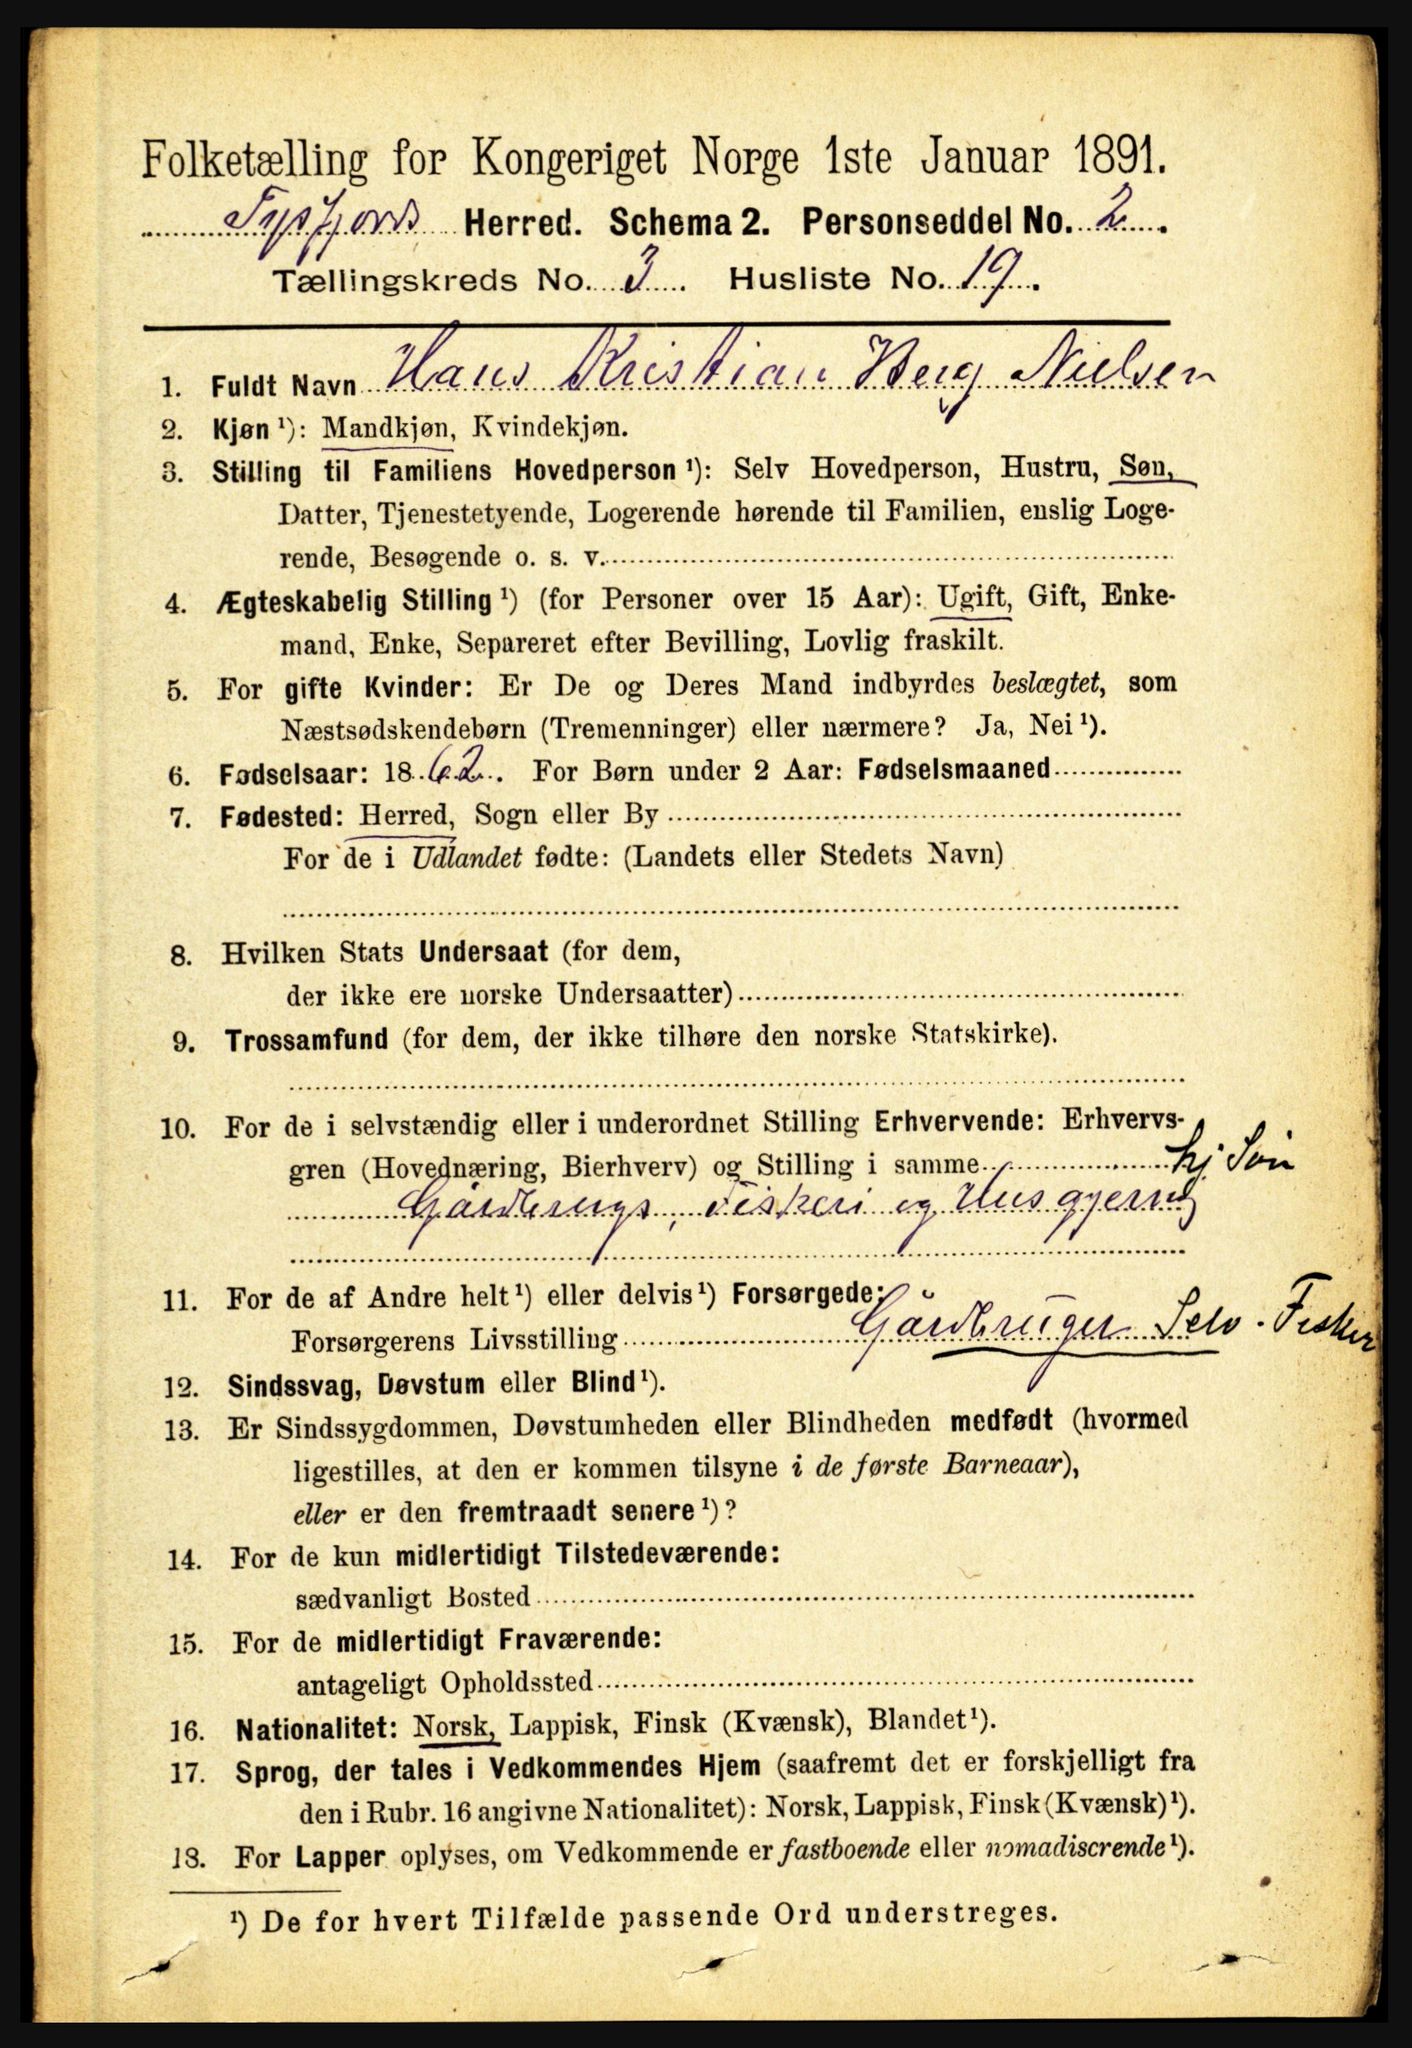 Folketælling for Kongeriget Norge 1ste Januar 1891.
Tysfjords Herred. Schema 2. Personseddel No. 2.
Tællingskreds No. 3. Husliste No. 19.
1. Fuldt Navn Hans Kristian Berg Nielsen
2. Kjøn ¹): Mandkjøn, Kvindekjøn.
3. Stilling til Familiens Hovedperson ¹): Selv Hovedperson, Hustru, Søn,
Datter, Tjenestetyende, Logerende hørende til Familien, enslig Loge-
rende, Besøgende o. s. v.
4. Ægteskabelig Stilling ¹) (for Personer over 15 Aar): Ugift, Gift, Enke-
mand, Enke, Separeret efter Bevilling, Lovlig fraskilt.
5. For gifte Kvinder: Er De og Deres Mand indbyrdes beslægtet, som
Næstsødskendebørn (Tremenninger) eller nærmere? Ja, Nei ¹).
6. Fødselsaar: 1862. For Børn under 2 Aar: Fødselsmaaned
7. Fødested: Herred, Sogn eller By
For de i Udlandet fødte: (Landets eller Stedets Navn)
8. Hvilken Stats Undersaat (for dem,
der ikke ere norske Undersaatter)
9. Trossamfund (for dem, der ikke tilhøre den norske Statskirke).
10. For de i selvstændig eller i underordnet Stilling Erhvervende: Erhvervs-
gren (Hovednæring, Bierhverv) og Stilling i samme hj Søn
Gårdbrugs, Fiskeri og Husgjerning
11. For de af Andre helt ¹) eller delvis ¹) Forsørgede:
Forsørgerens Livsstilling Gårdbruger Selv. Fisker
12. Sindssvag, Døvstum eller Blind ¹).
13. Er Sindssygdommen, Døvstumheden eller Blindheden medfødt (hvormed
ligestilles, at den er kommen tilsyne i de første Barneaar),
eller er den fremtraadt senere ¹)?
14. For de kun midlertidigt Tilstedeværende:
sædvanligt Bosted
15. For de midlertidigt Fraværende:
antageligt Opholdssted
16. Nationalitet: Norsk, Lappisk, Finsk (Kvænsk), Blandet ¹).
17. Sprog, der tales i Vedkommendes Hjem (saafremt det er forskjelligt fra
den i Rubr. 16 angivne Nationalitet): Norsk, Lappisk, Finsk (Kvænsk) ¹).
18. For Lapper oplyses, om Vedkommende er fastboende eller nomadiserende ¹).
¹) De for hvert Tilfælde passende Ord understreges.